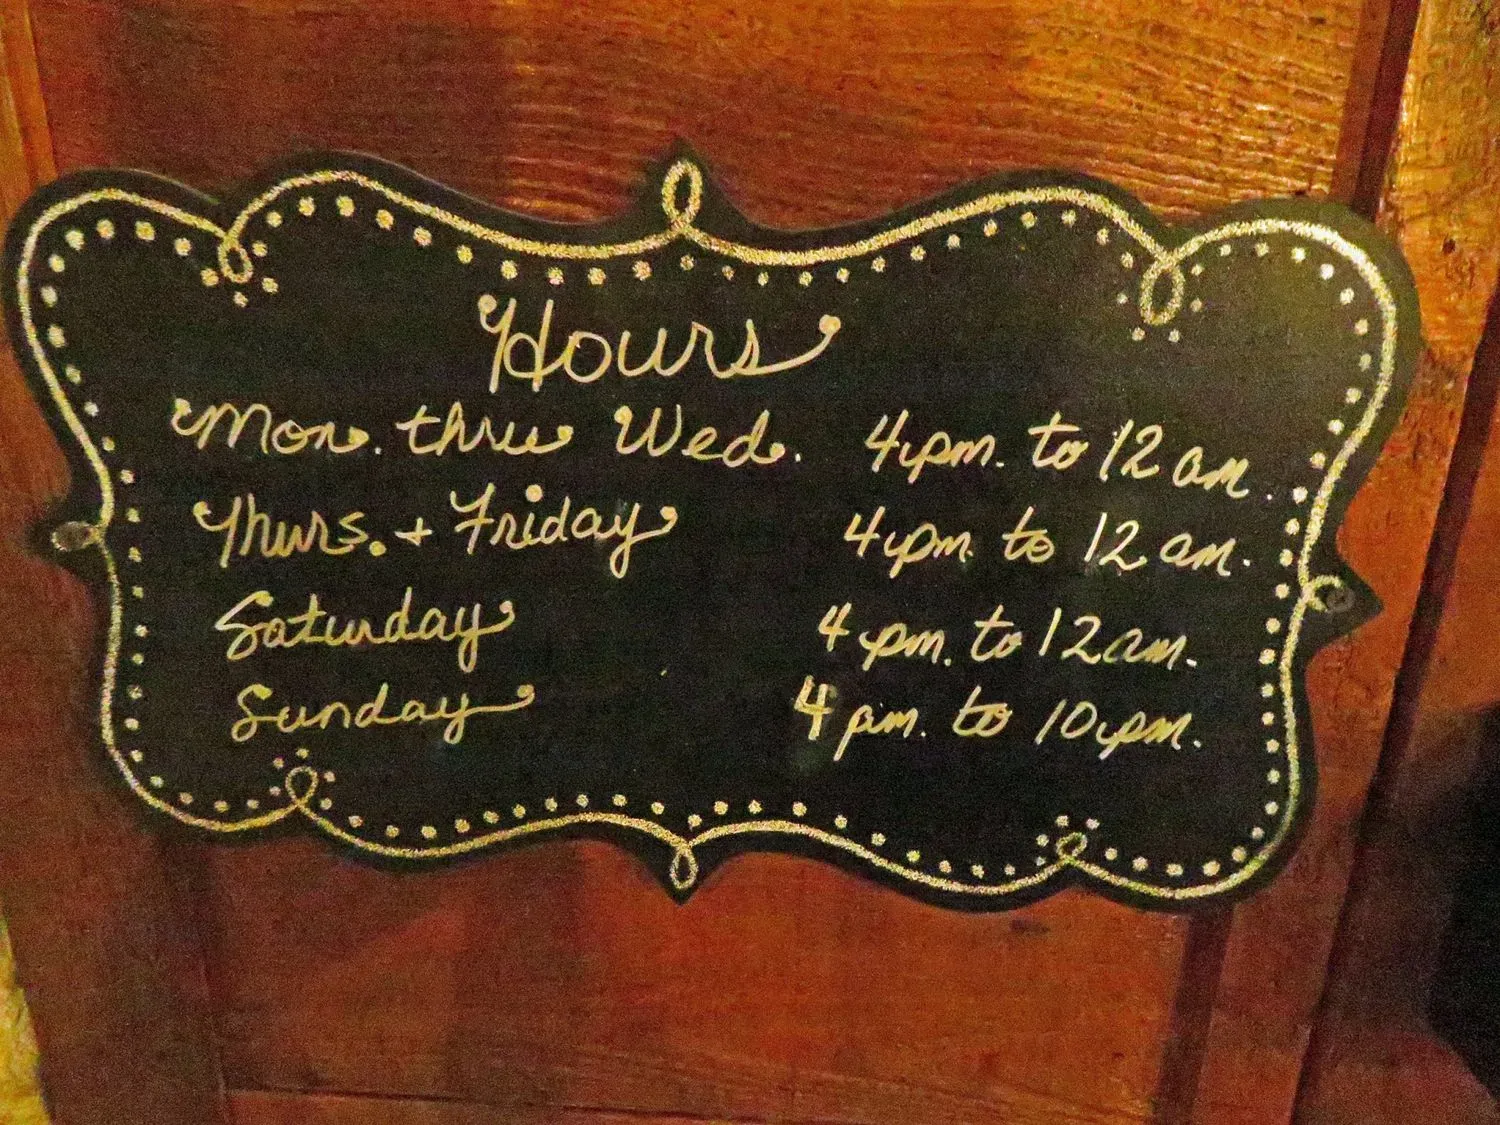 Hours
Mon. thru Wed. 4 pm. to 12 am.
Thurs. + Friday 4 pm. to 12 am.
Saturday 4 pm. to 12 am.
Sunday 4 pm. to 10 pm.